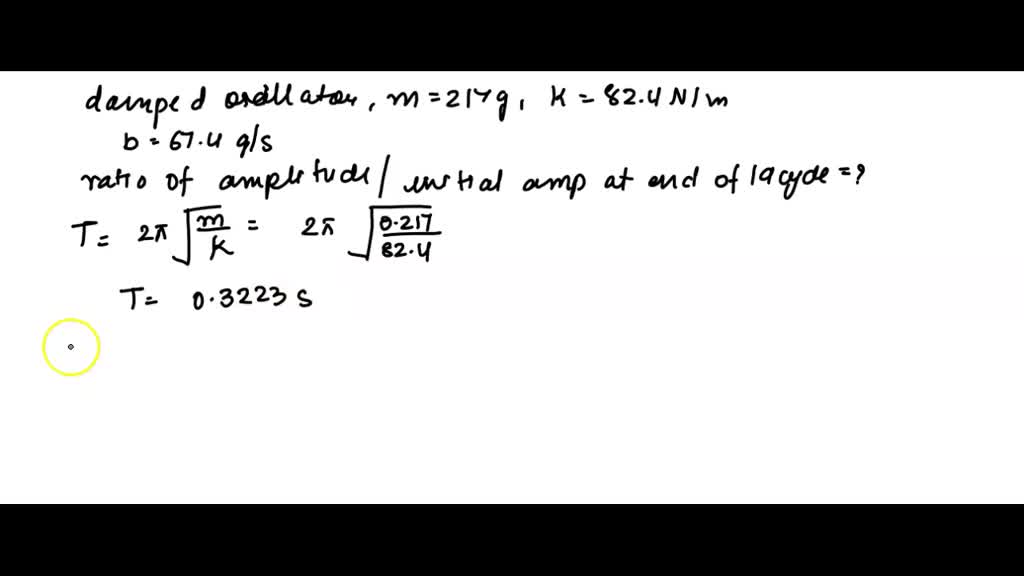 damped oscillator, m = 217g, K = 82.4 N/m
b = 67.4 g/s
ratio of amplitude / initial amp at end of 19 cycle = ?
T = 2π √(m/K) = 2π √(0.217/82.4)
T = 0.3223 s